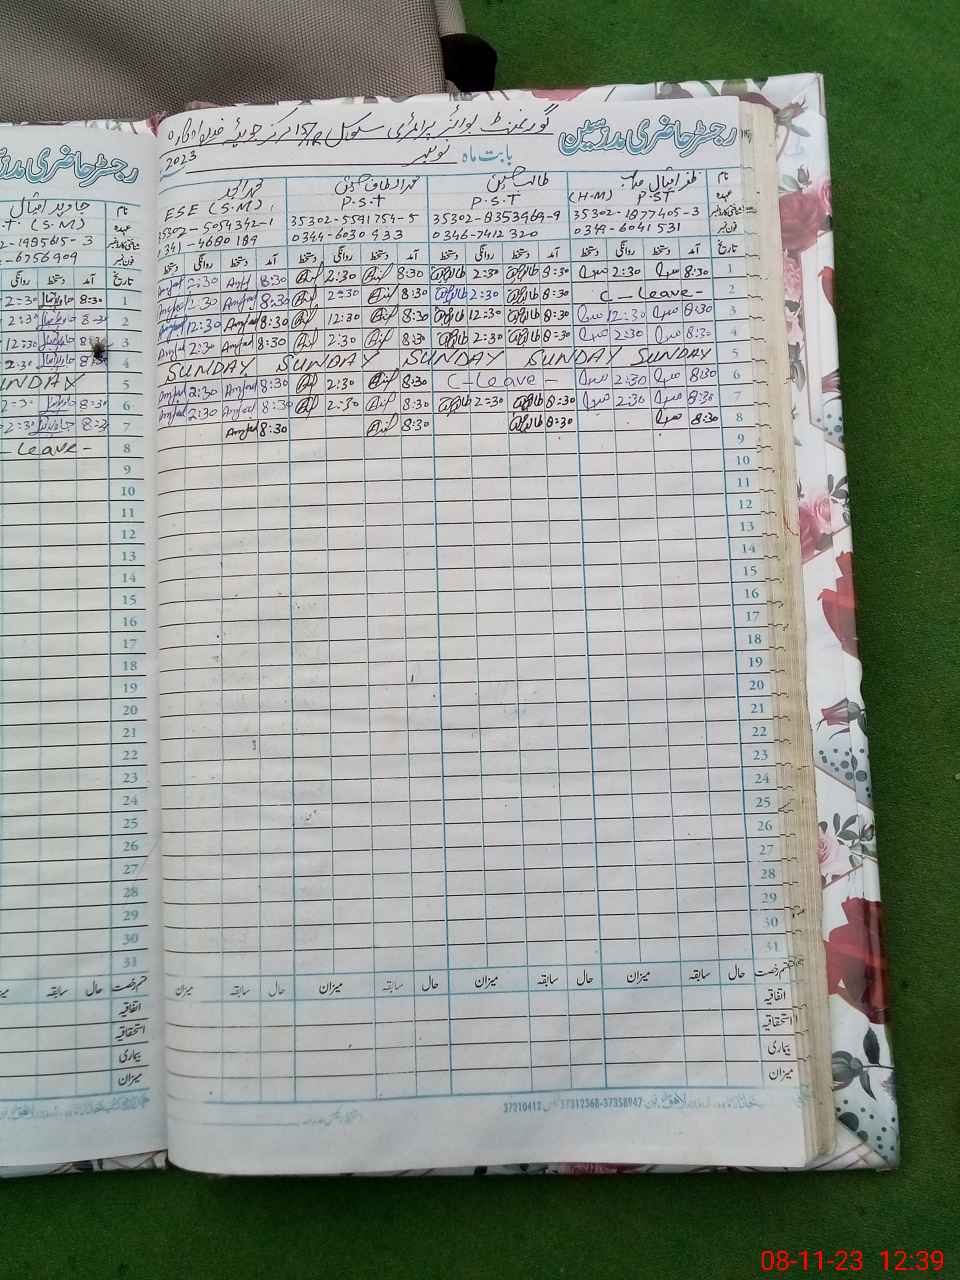 رجسٹر حاضری مدرسین
گورنمنٹ بوائز پرائمری سکول
بابت ماہ نومبر 2023
نام ظفر اقبال طالب حسین محمد الطاف حسین محمد امجد
عہدہ PST (H-M) P.S.T P.S.T ESE (S.M)
35302-1877405-3 35302-8353969-9 35302-5591754-5 35302-5054342-1
فون نمبر 0349-6041531 0346-7412320 0344-6030933 0341-4680189
تاریخ آمد دستخط روانگی دستخط آمد دستخط روانگی دستخط آمد دستخط روانگی دستخط آمد دستخط روانگی دستخط
1 8:30 2:30 8:30 2:30 8:30 2:30 8:30 Amjad 2:30 Amjad
2 C-Leave- 8:30 2:30 8:30 2:30 8:30 Amjad 2:30 Amjad
3 8:30 12:30 8:30 12:30 8:30 12:30 8:30 Amjad 12:30 Amjad
4 8:30 2:30 8:30 2:30 8:30 2:30 8:30 Amjad 2:30 Amjad
5 SUNDAY SUNDAY SUNDAY SUNDAY SUNDAY
6 8:30 2:30 C-Leave- 8:30 2:30 8:30 Amjad 2:30 Amjad
7 8:30 2:30 8:30 2:30 8:30 2:30 8:30 Amjad 2:30 Amjad
8 8:30 8:30 8:30 8:30 Amjad
9
10
11
12
13
14
15
16
17
18
19
20
21
22
23
24
25
26
27
28
29
30
31
قسم رخصت حال سابقہ میزان حال سابقہ میزان حال سابقہ میزان حال سابقہ میزان
اتفاقیہ
استحقاقیہ
بیماری
میزان
37312368-37358947 37210412
رجسٹر حاضری مدر
نام جاوید اقبال
عہدہ (S.M)
2-1985615-3
فون نمبر 6756909
تاریخ آمد دستخط روانگی
1 8:30 2:30
2 8:30 2:30
3 8:30 12:30
4 8:30 2:30
5 UNDAY
6 8:30 2:30
7 8:30 2:30
8 -Leave-
9
10
11
12
13
14
15
16
17
18
19
20
21
22
23
24
25
26
27
28
29
30
31
قسم رخصت حال سابقہ
اتفاقیہ
استحقاقیہ
بیماری
میزان
08-11-23 12:39